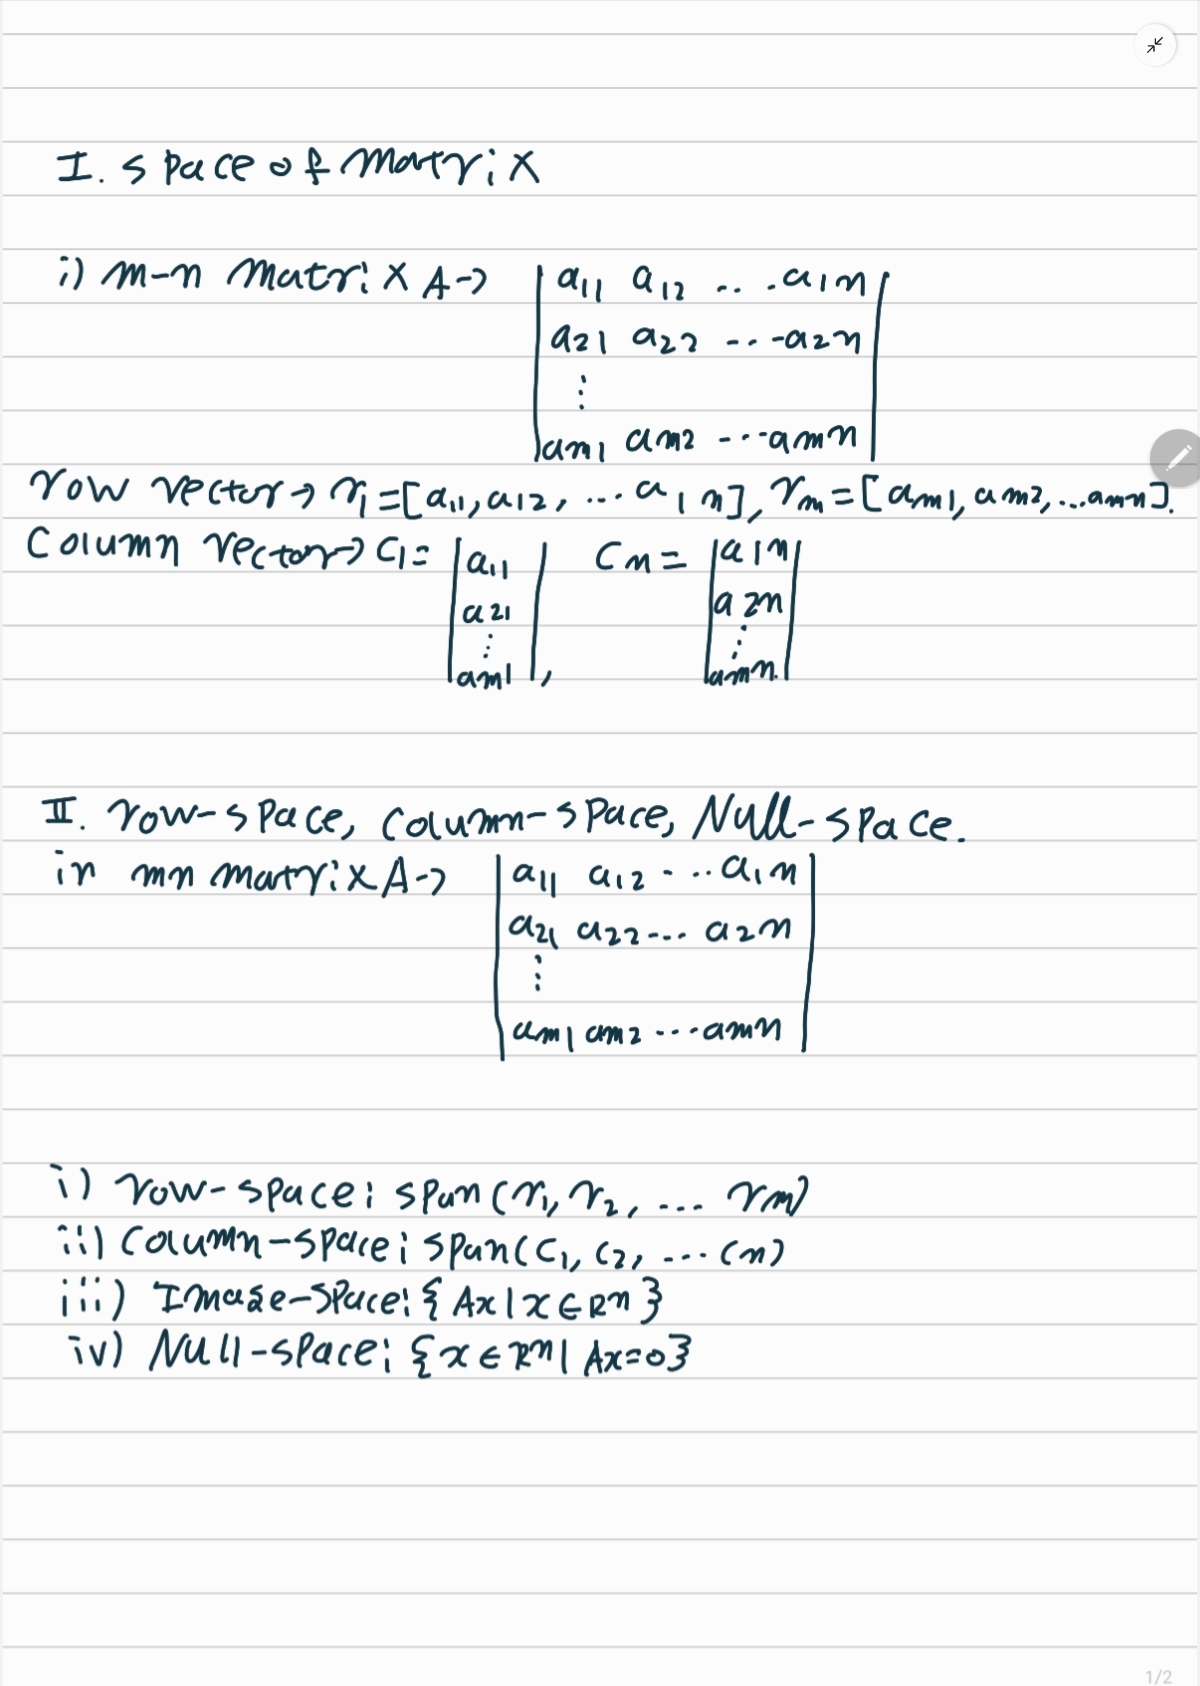 I. space of matrix
i) m-n matrix A→ | a11 a12 ... a1n |
| a21 a22 ... a2n |
⋮
| am1 am2 ... amn |
row vector → r1=[a11, a12, ... a1n], rm=[am1, am2, ... amn].
Column vector→ C1= | a11 | Cn= | a1n |
| a21 | | a2n |
⋮ ⋮
| am1 |, | amn. |
II. row-space, column-space, Null-space.
in mn matrix A→ | a11 a12 ... a1n |
| a21 a22 ... a2n |
⋮
| am1 am2 ... amn |
i) row-space: span(r1, r2, ... rm)
ii) column-space: span(C1, C2, ... Cn)
iii) Image-space: {Ax|x∈Rⁿ}
iv) Null-space: {x∈Rⁿ| Ax=0}
1/2